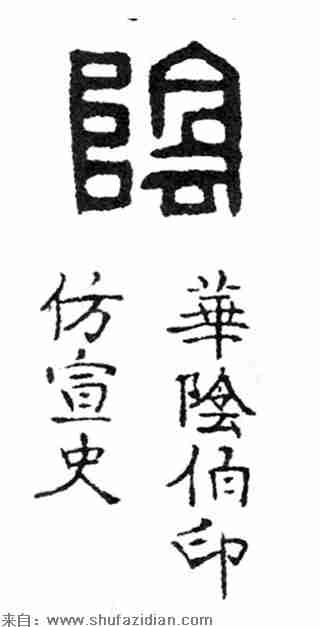 陰
華陰佰印
仿宣史
来自：www.shufazidian.com